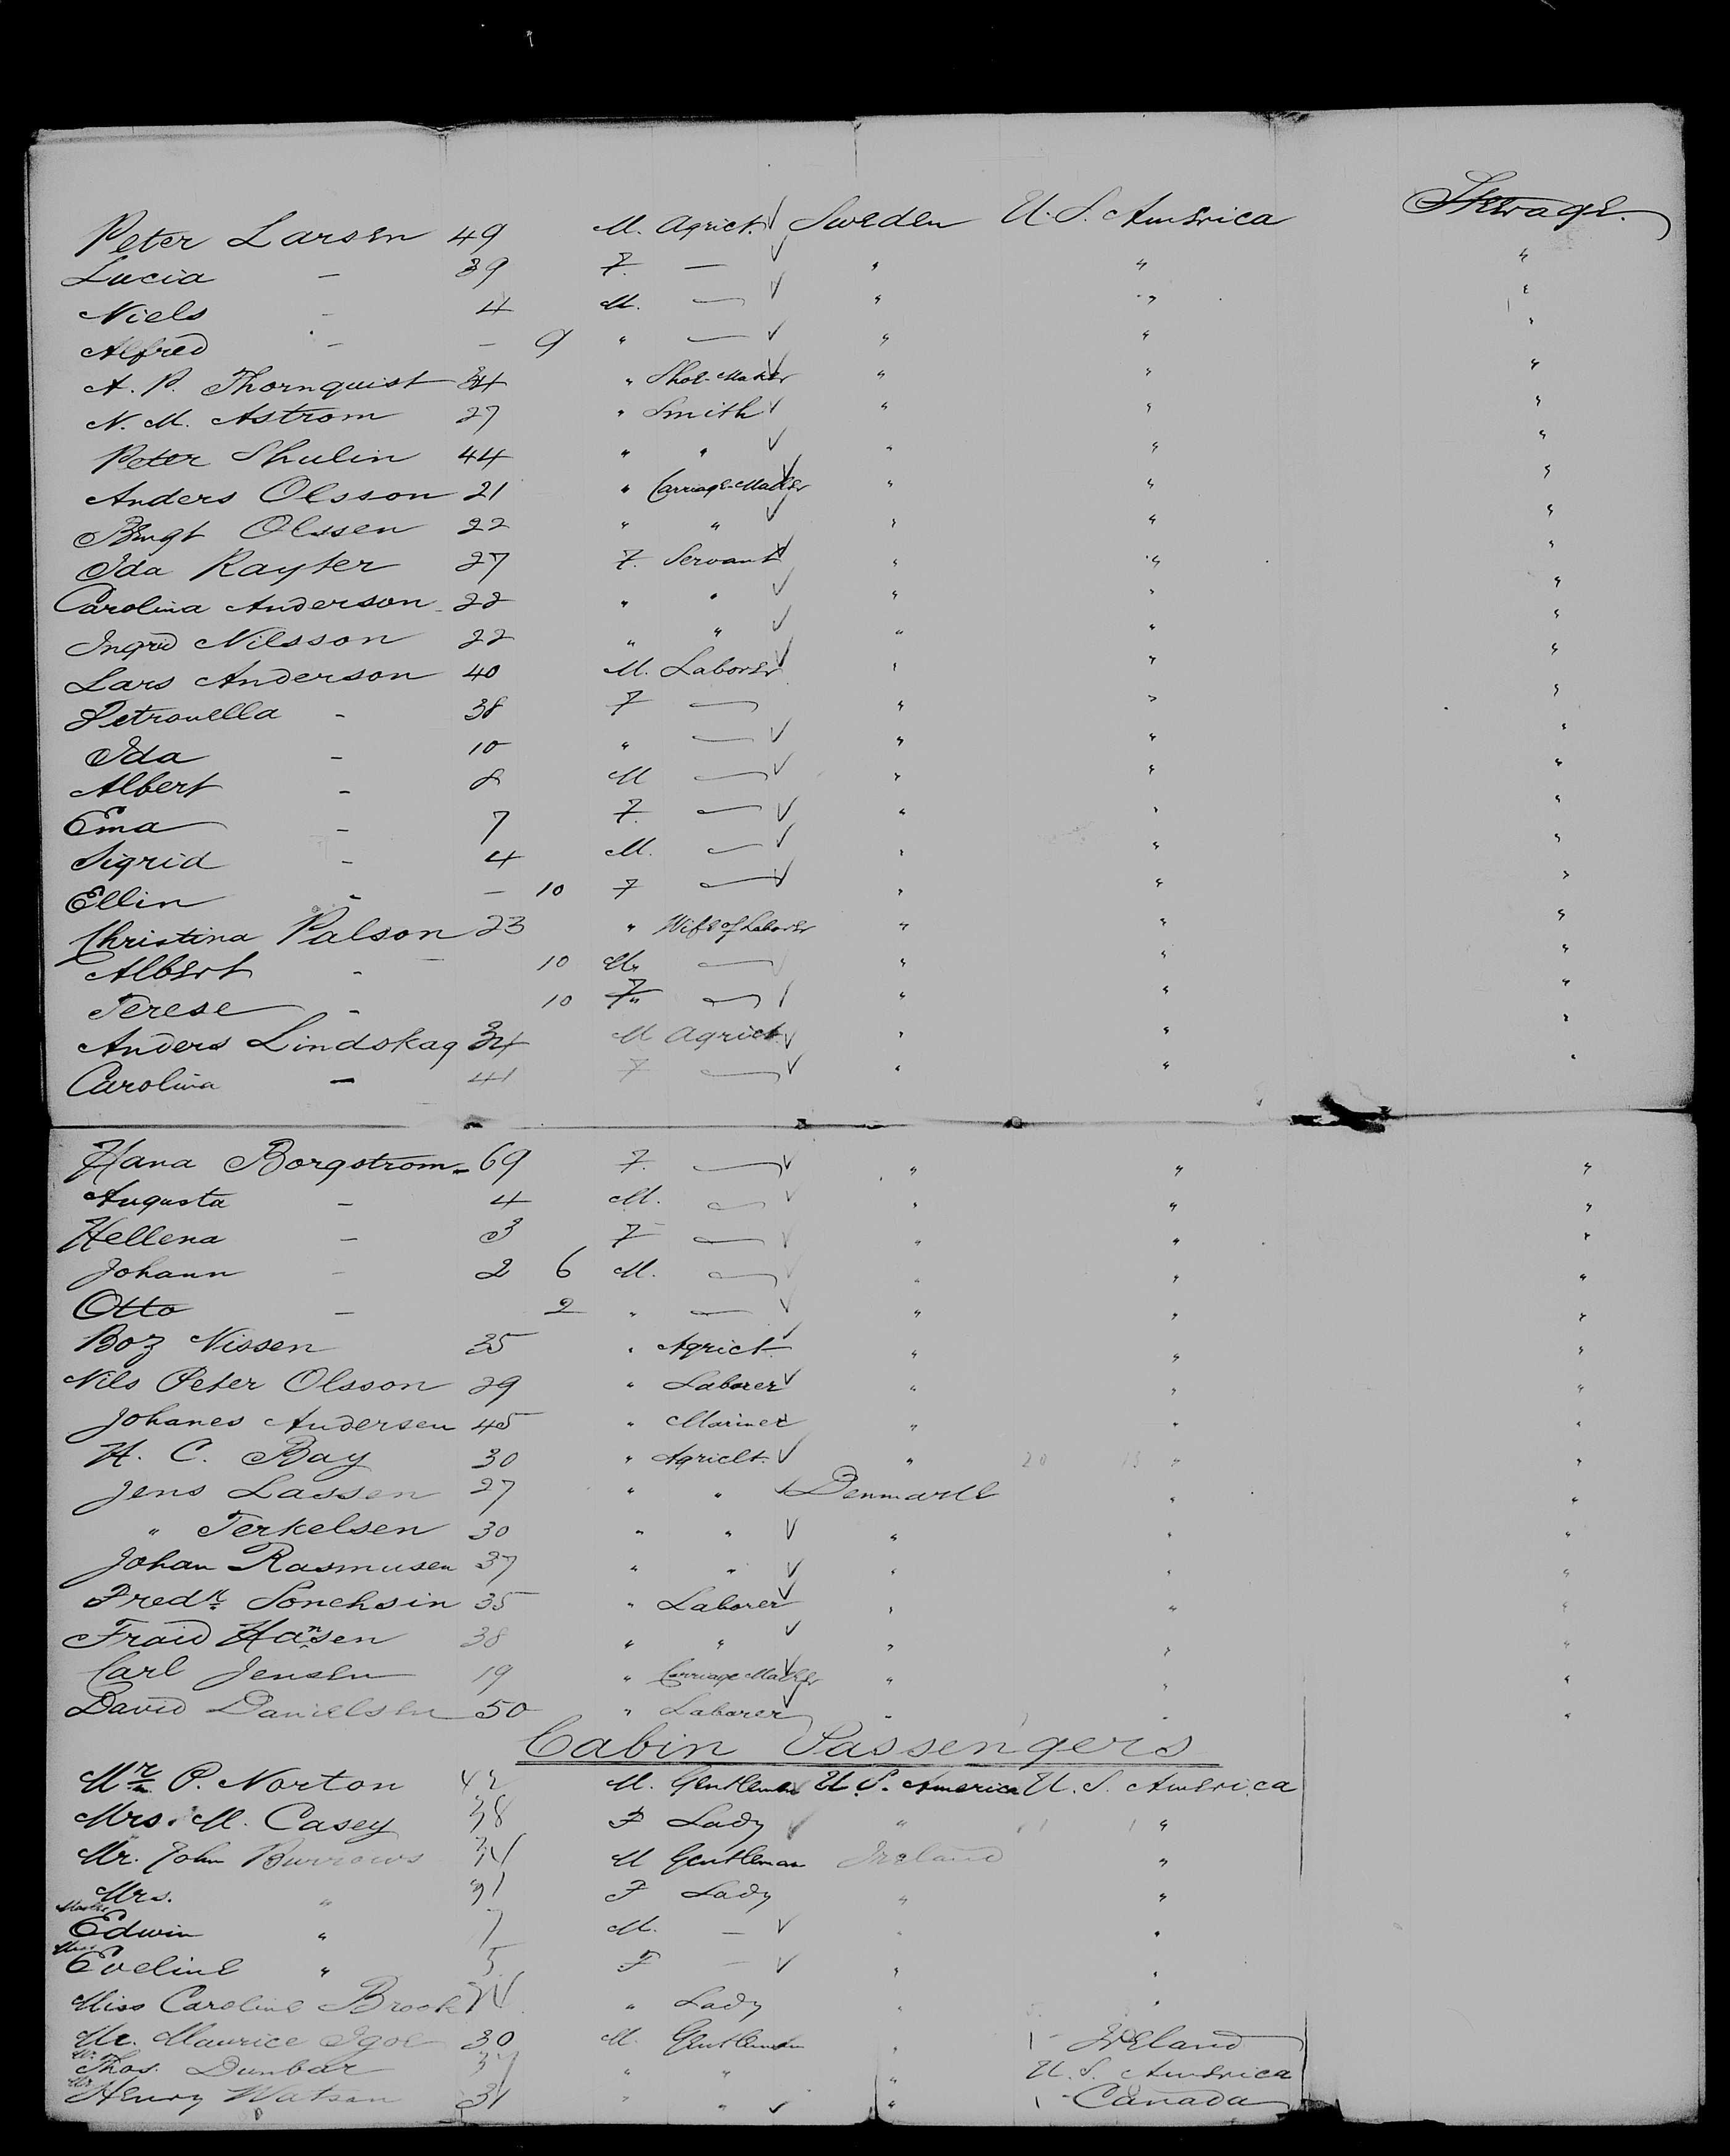 Peter Larsen 49 M. Agrict. Sweden U. S. America Steerage.
Lucia - 39 F. — " " "
Niels - 4 M. — " " "
Alfred - - 9 " — " " "
A. P. Thornquist 34 " Shoe-Maker " " "
N. M. Astrom 27 " Smith " " "
Peter Shulin 44 " " " " "
Anders Olsson 21 " Carriage-Maker " " "
Bengt Olssen 22 " " " " "
Ida Rayter 27 F. Servant " " "
Carolina Anderson 22 " " " " "
Ingrd Nilsson 22 " " " " "
Lars Anderson 40 M. Laborer " " "
Petronella - 38 F — " " "
Ida - 10 " — " " "
Albert - 8 M — " " "
Ema - 7 F. — " " "
Sigrid - 4 M. — " " "
Ellin - - 10 F — " " "
Christina Palson 23 " Wife of Laborer " " "
Albert - 10 M — " " "
Terese - 10 F — " " "
Anders Lindskag 34 M Agrict " " "
Carolina - 41 F — " " "
Hana Borgstrom 69 F. — " " "
Augusta - 4 M. — " " "
Hellena - 3 F — " " "
Johann - 2 6 M. — " " "
Otto - 2 " — " " "
Boz Nissen 35 " Agrict. " " "
Nils Peter Olsson 29 " Laborer " " "
Johanes Andersen 45 " Mariner " " "
H. C. Bay 30 " Agriclt. " " "
Jens Lassen 27 " " Denmark " "
" Terkelsen 30 " " " " "
Johan Rasmusen 37 " " " " "
Fredk. Sonchsin 35 " Laborer " " "
Fraid Hansen 38 " " " " "
Carl Jensen 19 " Carriage Maker " " "
David Danielsen 50 " Laborer " " "
Cabin Passengers
Mr. P. Norton 42 M. Gentleman U. S. America U. S. America
Mrs. M. Casey 38 F Lady " "
Mr. John Burrows 34 M Gentleman Ireland "
Mrs. " 31 F Lady " "
Master Edwin " 7 M. - " "
Miss Eveline " 5 F - " "
Miss Caroline Brook " Lady " "
Mr. Maurice Igoe 30 M. Gentleman " Ireland
Mr. Thos. Dunbar " " " U. S. America
Mr. Henry Watson 31 " " " Canada